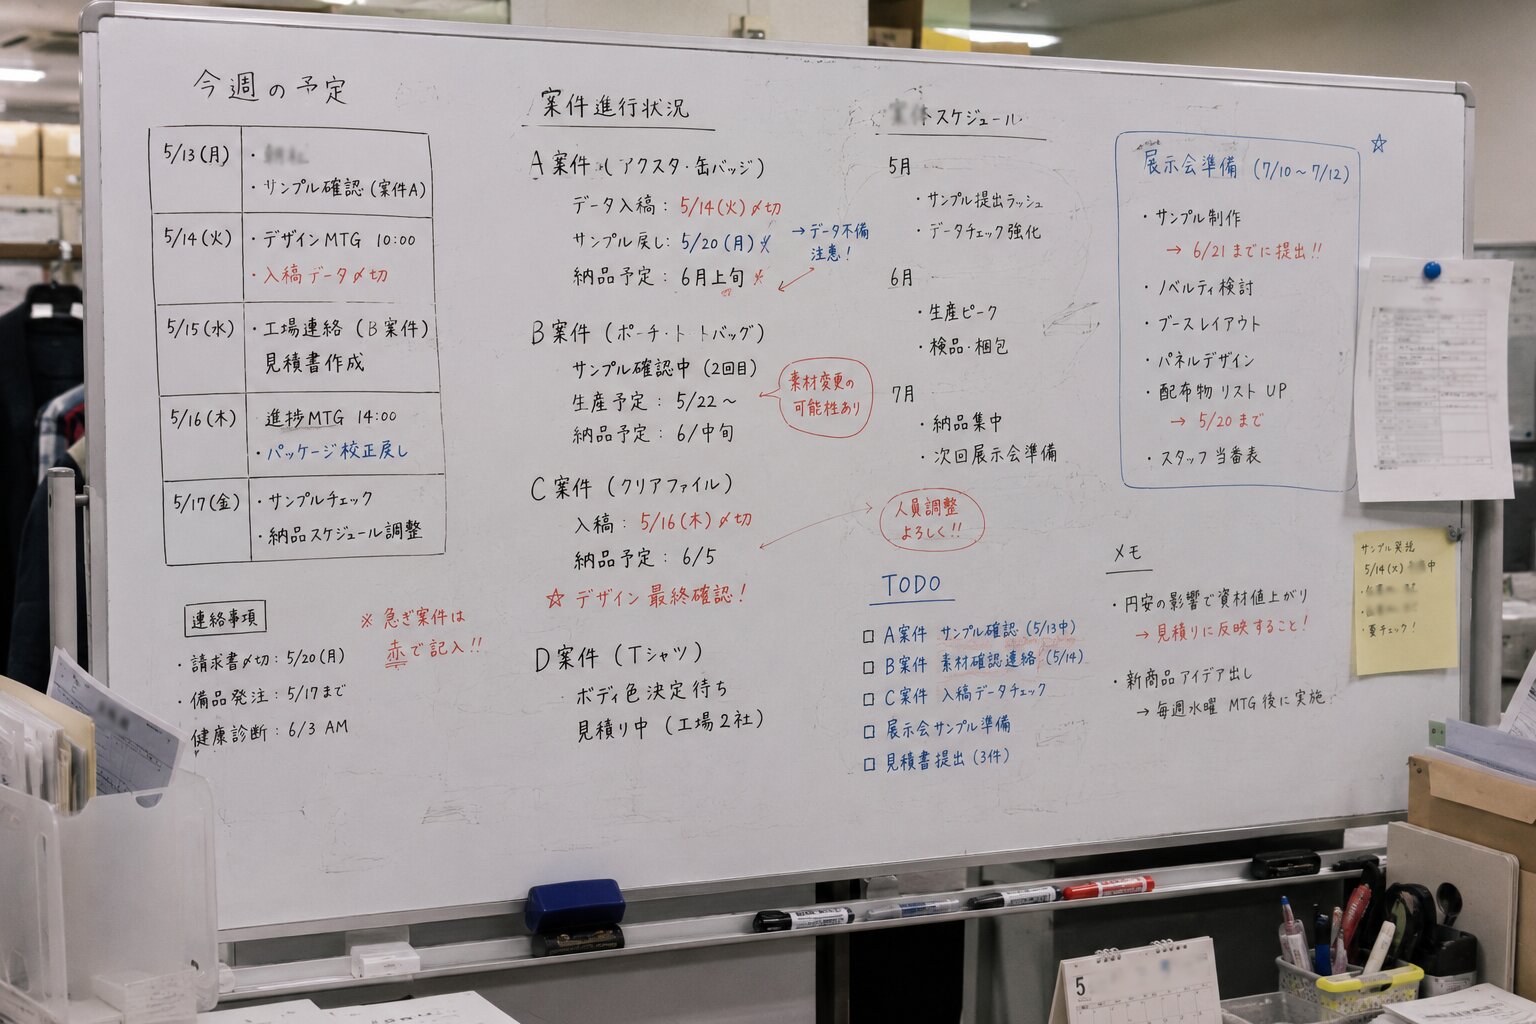 今週の予定
5/13(月)
・サンプル確認(案件A)
5/14(火)
・デザインMTG 10:00
・入稿データ〆切
5/15(水)
・工場連絡(B案件)
見積書作成
5/16(木)
進捗MTG 14:00
・パッケージ校正戻し
5/17(金)
・サンプルチェック
・納品スケジュール調整
連絡事項
・請求書〆切:5/20(月)
・備品発注:5/17まで
健康診断:6/3 AM
※ 急ぎ案件は
赤で記入!!
案件進行状況
A案件(アクスタ・缶バッジ)
データ入稿:5/14(火)〆切
サンプル戻し:5/20(月)
納品予定:6月上旬
→データ不備
注意!
B案件(ポーチ・トートバッグ)
サンプル確認中(2回目)
生産予定:5/22〜
納品予定:6/中旬
素材変更の
可能性あり
C案件(クリアファイル)
入稿:5/16(木)〆切
納品予定:6/5
☆ デザイン最終確認!
D案件(Tシャツ)
ボディ色決定待ち
見積り中(工場2社)
スケジュール
5月
・サンプル提出ラッシュ
・データチェック強化
6月
・生産ピーク
・検品・梱包
7月
・納品集中
・次回展示会準備
人員調整
よろしく!!
TODO
□ A案件 サンプル確認(5/13中)
□ B案件 素材確認連絡(5/14)
□ C案件 入稿データチェック
□ 展示会サンプル準備
□ 見積書提出(3件)
☆
展示会準備(7/10〜7/12)
・サンプル制作
→ 6/21までに提出!!
・ノベルティ検討
・ブースレイアウト
・パネルデザイン
・配布物リストUP
→ 5/20まで
・スタッフ当番表
メモ
・円安の影響で資材値上がり
→見積りに反映すること!
・新商品アイデア出し
→毎週水曜 MTG後に実施
サンプル発送
5/14(火) 中
・要チェック!
5